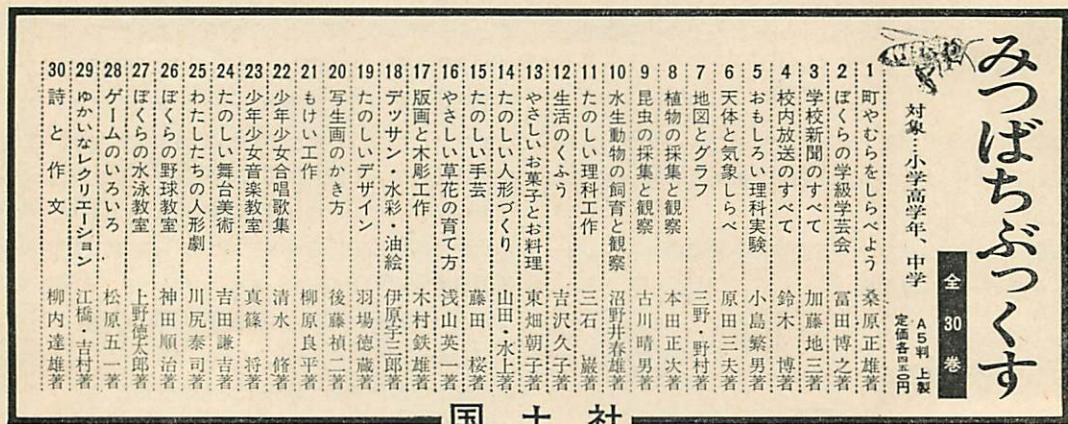 みつばちぶっくす
対象…小学高学年、中学
全30巻
A5判 上製
定価各四五〇円
1 町やむらをしらべよう 桑原正雄著
2 ぼくらの学級学芸会 冨田博之著
3 学校新聞のすべて 加藤地三著
4 校内放送のすべて 鈴木 博著
5 おもしろい理科実験 小島繁男著
6 天体と気象しらべ 原田三夫著
7 地図とグラフ 三野・野村著
8 植物の採集と観察 本田正次著
9 昆虫の採集と観察 古川晴男著
10 水生動物の飼育と観察 沼野井春雄著
11 たのしい理科工作 三石 巌著
12 生活のくふう 吉沢久子著
13 やさしいお菓子とお料理 東畑朝子著
14 たのしい人形づくり 山田・水上著
15 たのしい手芸 藤田 桜著
16 やさしい草花の育て方 浅山英一著
17 版画と木彫工作 木村鉄雄著
18 デッサン・水彩・油絵 伊原宇三郎著
19 たのしいデザイン 羽場徳蔵著
20 写生画のかき方 後藤禎二著
21 もけい工作 柳原良平著
22 少年少女合唱歌集 清水 脩著
23 少年少女音楽教室 真篠 将著
24 たのしい舞台美術 吉田謙吉著
25 わたしたちの人形劇 川尻泰司著
26 ぼくらの野球教室 神田順治著
27 ぼくらの水泳教室 上野徳太郎著
28 ゲームのいろいろ 松原五一著
29 ゆかいなレクリエーション 江橋・吉村著
30 詩と作文 柳内達雄著
国土社